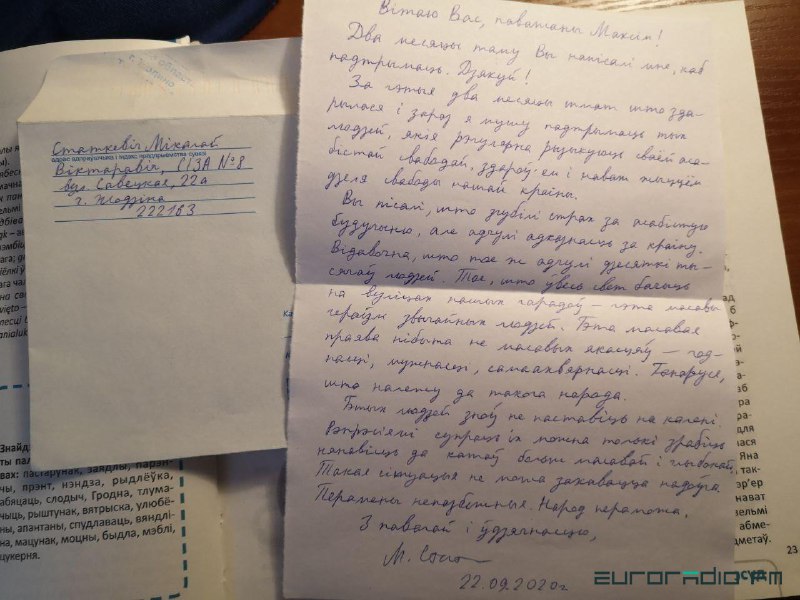 Вітаю Вас, паважаны Максім!
Два месяцы таму Вы напісалі мне, каб
падтрымаць. Дзякуй!
За гэтыя два месяцы шмат што зда-
рылася і зараз я мушу падтрымаць тых
людзей, якія рэгулярна рызыкуюць сваёй аса-
бістай свабодай, здароў'ем і нават жыццём
дзеля свабоды нашай краіны.
Вы пісалі, што згубілі страх за асабістую
будучыню, але адчулі адказнасць за краіну.
Відавочна, што тое ж адчулі дзесяткі ты-
сячаў людзей. Тое, што ўвесь свет бачыць
на вуліцах нашых гарадоў — гэта масавы
гераізм звычайных людзей. Гэта масавая
праява нібыта не масавых якасцяў — год-
насці, мужнасці, самаахвярнасці. Ганаруся,
што належу да такога народа.
Гэтых людзей зноў не паставіць на калені.
Рэпрэсіямі супраць іх можна толькі зрабіць
нянавісць да катаў больш масавай і глыбокай.
Такая сітуацыя не можа захавацца надоўга.
Перамены непазбежныя. Народ пераможа.
З павагай і ўдзячнасцю,
22.09.2020г
Статкевіч Мікалай
Віктаравіч, СІЗА №8
вул. Савецкая, 22а
г. Жодзіна
222163
Знайдз
вах: пастарунак, заядлы, паран-
чы, прэнт, нэндза, рыдлёўка,
абяцаць, слодыч, Гродна, тлума-
чыць, рыштунак, вятрыска, улюбё-
ны, апантаны, спудлаваць, вяндлі-
на, мацунак, моцны, быдла, мэблі,
цукерня.
Яна
так-
вар'ер
нават
вельмі
абме-
дметаў.
23
euroradio.fm